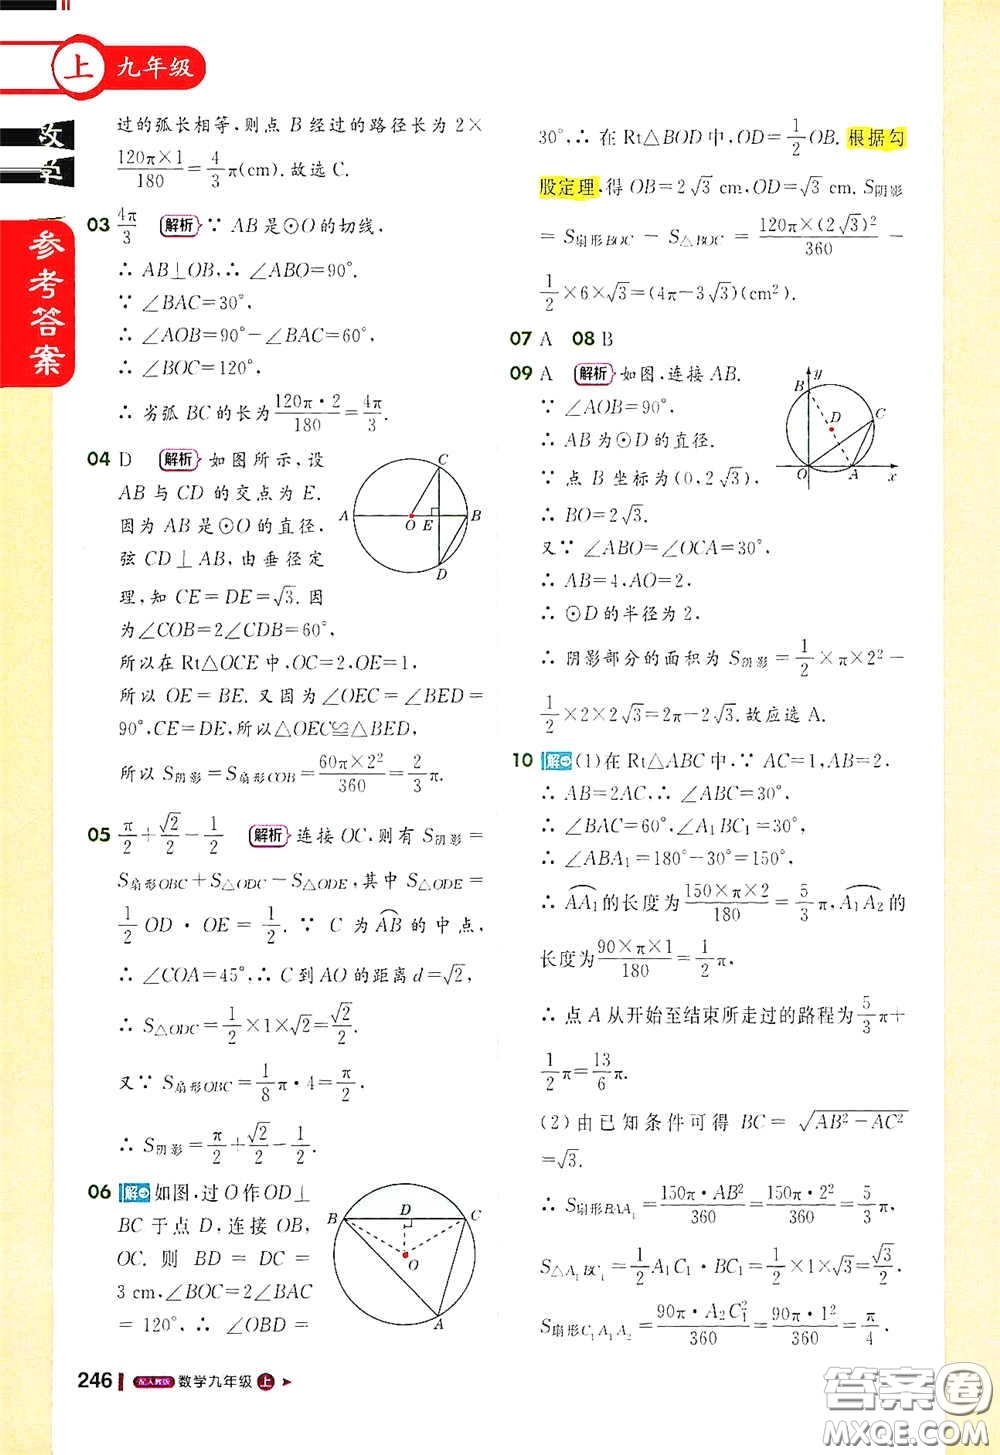 上 九年级
数学
参考答案
过的弧长相等,则点 B 经过的路径长为 2×
120π×1/180=4/3π(cm).故选 C.
03 4π/3 解析 ∵ AB是⊙O的切线,
∴ AB⊥OB,∴ ∠ABO=90°.
∵ ∠BAC=30°,
∴ ∠AOB=90°-∠BAC=60°,
∴ ∠BOC=120°,
∴ 劣弧 BC 的长为120π·2/180=4π/3.
04 D 解析 如图所示,设
AB 与 CD 的交点为 E.
因为 AB 是⊙O的直径,
弦 CD⊥AB,由垂径定
理,知 CE=DE=√3. 因
为∠COB=2∠CDB=60°,
所以在 Rt△OCE 中,OC=2,OE=1,
所以 OE=BE. 又因为∠OEC=∠BED=
90°,CE=DE,所以△OEC≌△BED,
所以 S阴影=S扇形COB=60π×2²/360=2/3π.
A O E B C D
05 π/2+√2/2-1/2 解析 连接 OC,则有 S阴影=
S扇形OBC+S△ODC-S△ODE,其中 S△ODE=
1/2 OD·OE=1/2. ∵ C 为 AB 的中点,
∴ ∠COA=45°,∴ C 到 AO 的距离 d=√2,
∴ S△ODC=1/2×1×√2=√2/2.
又∵ S扇形OBC=1/8π·4=π/2.
∴ S阴影=π/2+√2/2-1/2.
06 解 如图,过 O 作 OD⊥
BC 于点 D,连接 OB,
OC. 则 BD = DC =
3 cm,∠BOC=2∠BAC
=120°,∴ ∠OBD=
B D C O A
30°,∴ 在 Rt△BOD 中,OD=1/2OB. 根据勾
股定理,得 OB=2√3 cm,OD=√3 cm. S阴影
=S扇形BOC-S△BOC=120π×(2√3)²/360-
1/2×6×√3=(4π-3√3)(cm²).
07 A 08 B
09 A 解析 如图,连接 AB.
∵ ∠AOB=90°,
∴ AB 为⊙D 的直径.
∵ 点 B 坐标为(0,2√3),
∴ BO=2√3.
又∵ ∠ABO=∠OCA=30°,
∴ AB=4,AO=2,
∴ ⊙D 的半径为 2.
∴ 阴影部分的面积为 S阴影=1/2×π×2²-
1/2×2×2√3=2π-2√3.故应选 A.
B y D C O A x
10 解 (1)在 Rt△ABC 中,∵ AC=1,AB=2,
∴ AB=2AC,∴ ∠ABC=30°,
∴ ∠BAC=60°,∠A₁BC₁=30°,
∴ ∠ABA₁=180°-30°=150°,
∴ AA₁的长度为150×π×2/180=5/3π,A₁A₂的
长度为90×π×1/180=1/2π,
∴ 点 A 从开始至结束所走过的路程为5/3π+
1/2π=13/6π.
(2)由已知条件可得 BC=√AB²-AC²
=√3.
∴ S扇形BAA₁=150π·AB²/360=150π·2²/360=5/3π,
S△A₁BC₁=1/2A₁C₁·BC₁=1/2×1×√3=√3/2.
S扇形C₁A₁A₂=90π·A₂C₁²/360=90π·1²/360=π/4.
246 配人教版 数学九年级 上
答案圈
MXQE.COM